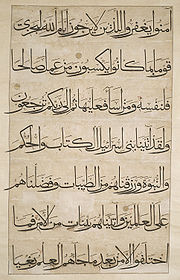 امنوا يغفروا للذين لا يرجون ايام الله ليجزى
قوما بما كانوا يكسبون من عمل صالحا
فلنفسه ومن اسا فعليها ثم الى ربكم ترجعون
ولقد اتينا بنى اسرائيل الكتاب والحكم
والنبوة ورزقناهم من الطيبات وفضلناهم
على العالمين واتيناهم بينات من الامر فما
اختلفوا الا من بعد ما جاهم العلم بغيا